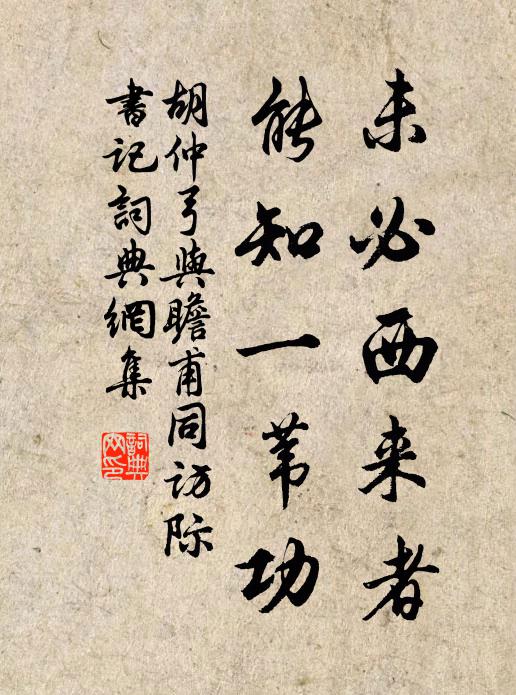 未必西来者
能知一苇功
胡仲弓與瞻甫同访际
書记詞典網集
詞典网印